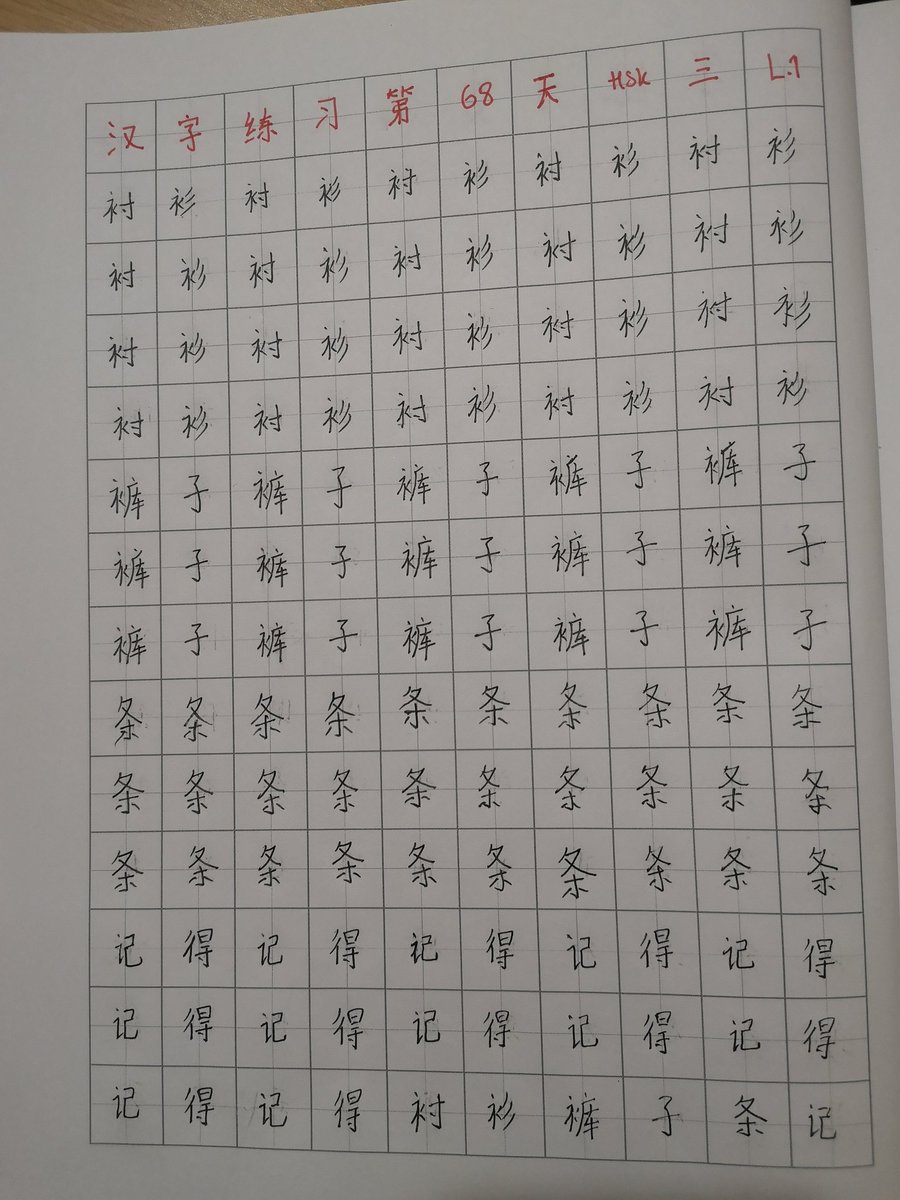 汉字练习第68天HSK三L.1
衬衫衬衫衬衫衬衫衬衫
衬衫衬衫衬衫衬衫衬衫
衬衫衬衫衬衫衬衫衬衫
衬衫衬衫衬衫衬衫衬衫
裤子裤子裤子裤子裤子
裤子裤子裤子裤子裤子
裤子裤子裤子裤子裤子
条条条条条条条条条条
条条条条条条条条条条
条条条条条条条条条条
记得记得记得记得记得
记得记得记得记得记得
记得记得衬衫裤子条记